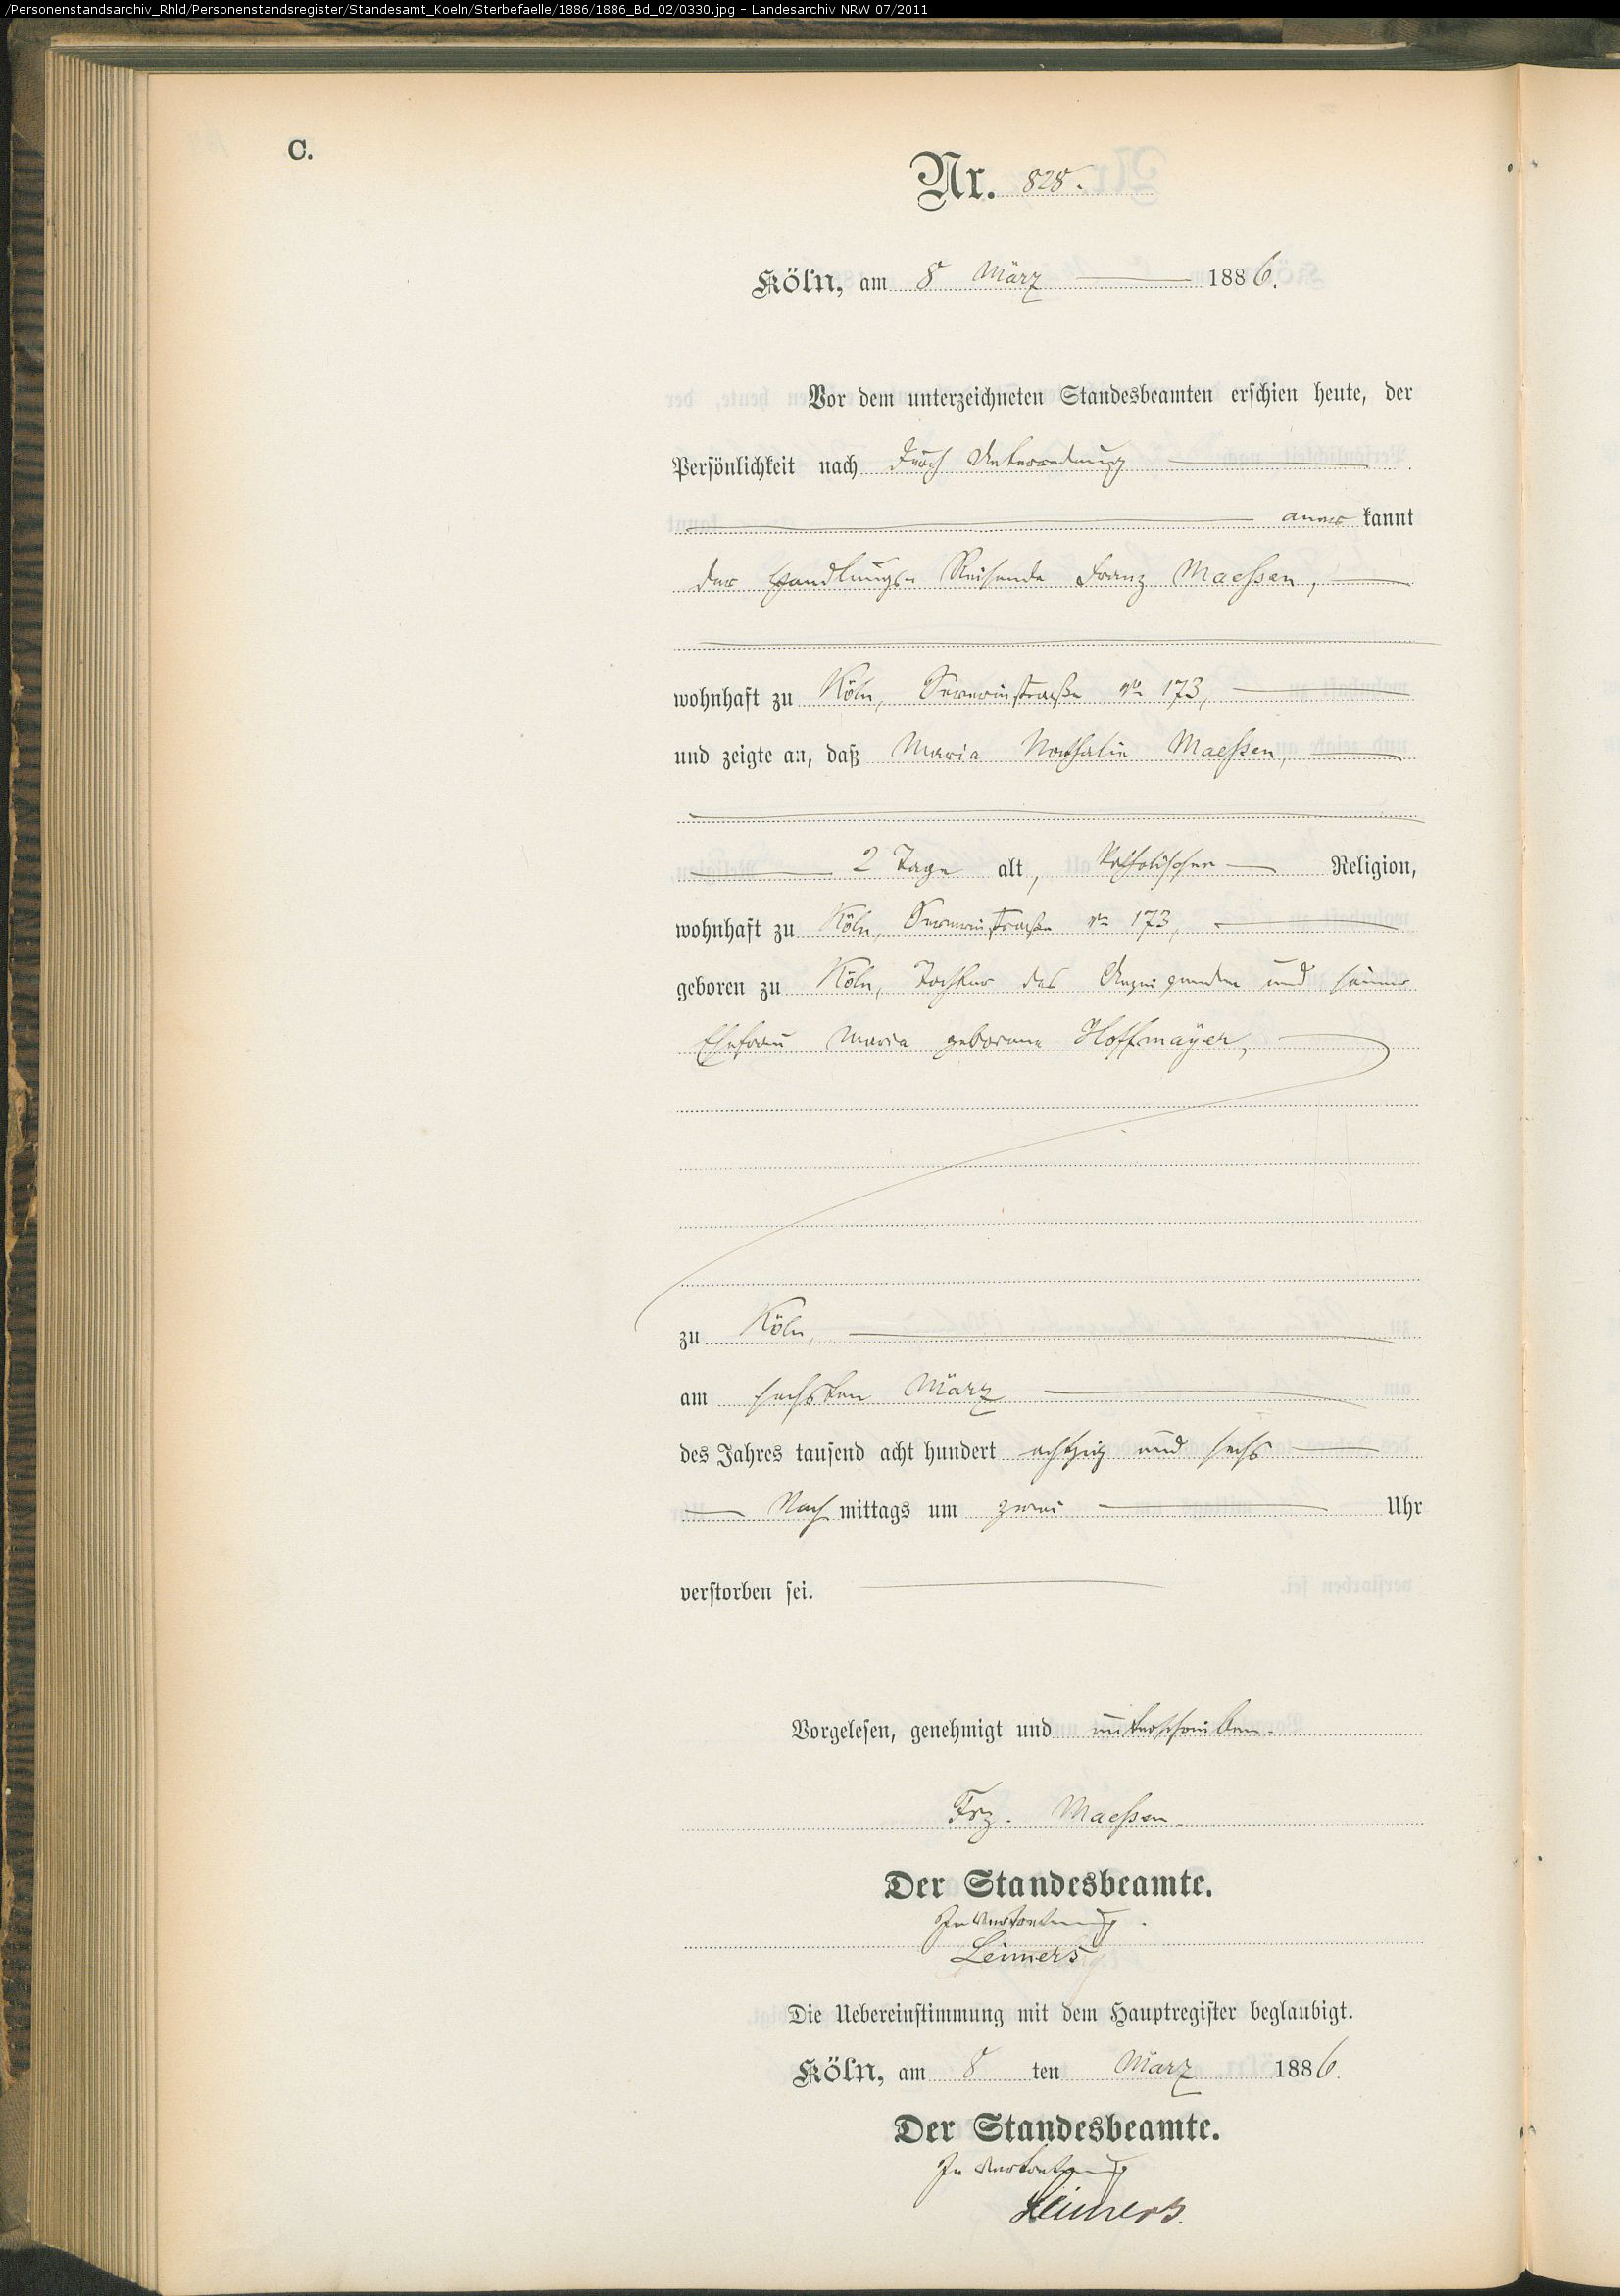 /Personenstandsarchiv_Rhld/Personenstandsregister/Standesamt_Koeln/Sterbefaelle/1886/1886_Bd_02/0330.jpg - Landesarchiv NRW 07/2011
C.
Nr. 828.
Köln, am 8 März 1886.
Vor dem unterzeichneten Standesbeamten erschien heute, der
Persönlichkeit nach durch Unterredung
aner kannt
der Handlungs-Reisende Franz Maeßen,
wohnhaft zu Köln, Severinstraße No 173,
und zeigte an, daß Maria Nathalie Maeßen,
2 Tage alt, katholischer Religion,
wohnhaft zu Köln, Severinstraße No 173,
geboren zu Köln, Tochter des Anzeigenden und seiner
Ehefrau Maria geborene Hoffmäyer,
zu Köln,
am sechsten März
des Jahres tausend acht hundert achtzig und sechs
Nach mittags um zwei Uhr
verstorben sei.
Vorgelesen, genehmigt und unterschrieben.
Frz. Maeßen
Der Standesbeamte.
In Vertretung.
Leiners
Die Uebereinstimmung mit dem Hauptregister beglaubigt.
Köln, am 8 ten März 1886.
Der Standesbeamte.
In Vertretung
Leiners.